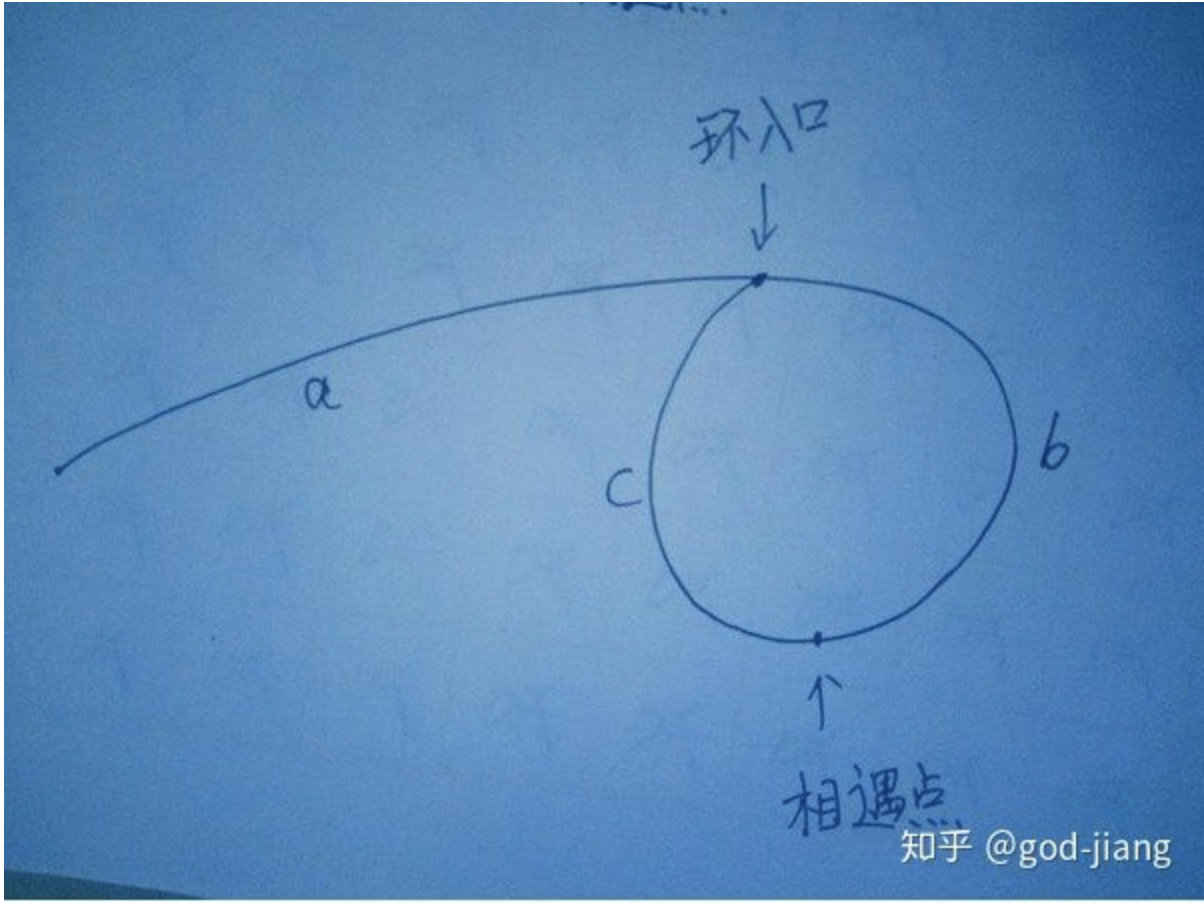 环入口
↓
a
b
c
↑
相遇点
知乎 @god-jiang